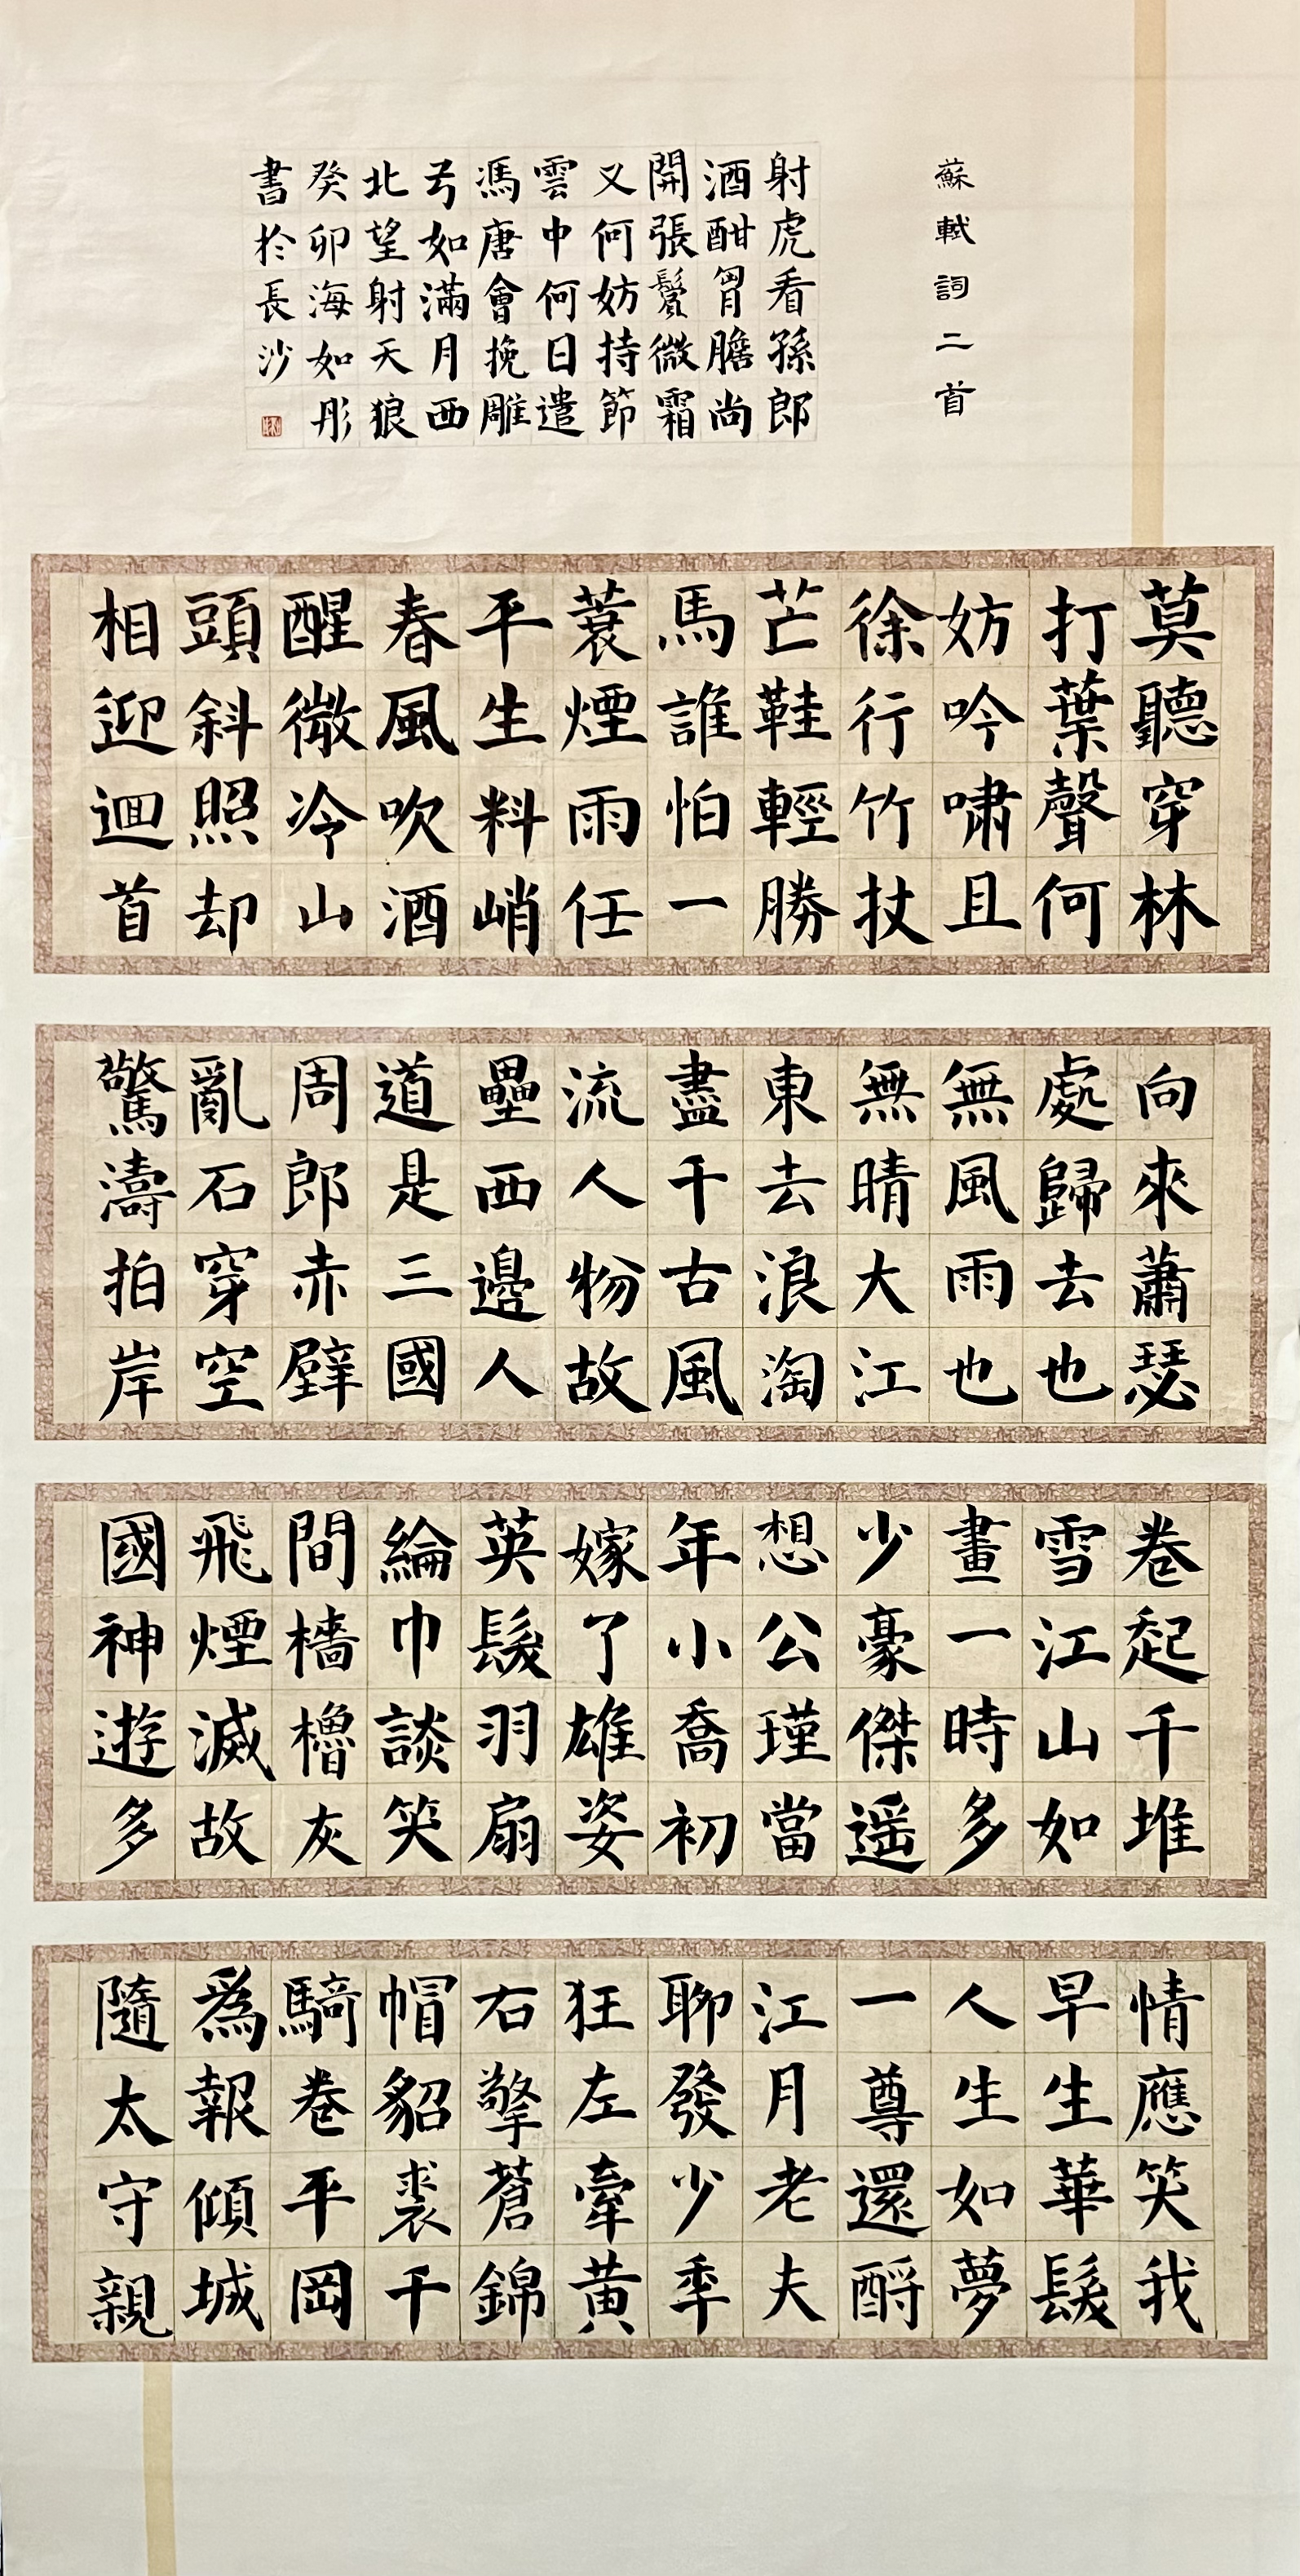 蘇軾詞二首
莫聽穿林
打葉聲何
妨吟嘯且
徐行竹杖
芒鞋輕勝
馬誰怕一
蓑煙雨任
平生料峭
春風吹酒
醒微冷山
頭斜照却
相迎迴首
向來蕭瑟
處歸去也
無風雨也
無晴大江
東去浪淘
盡千古風
流人物故
壘西邊人
道是三國
周郎赤壁
亂石穿空
驚濤拍岸
卷起千堆
雪江山如
畫一時多
少豪傑遥
想公瑾當
年小喬初
嫁了雄姿
英髮羽扇
綸巾談笑
間檣櫓灰
飛煙滅故
國神遊多
情應笑我
早生華髮
人生如夢
一尊還酹
江月老夫
聊發少秊
狂左牽黄
右擎蒼錦
帽貂裘千
騎卷平岡
爲報傾城
隨太守親
射虎看孫郎
酒酣胷膽尚
開張鬢微霜
又何妨持節
雲中何日遣
馮唐會挽雕
弓如滿月西
北望射天狼
癸卯海如彤
書於長沙